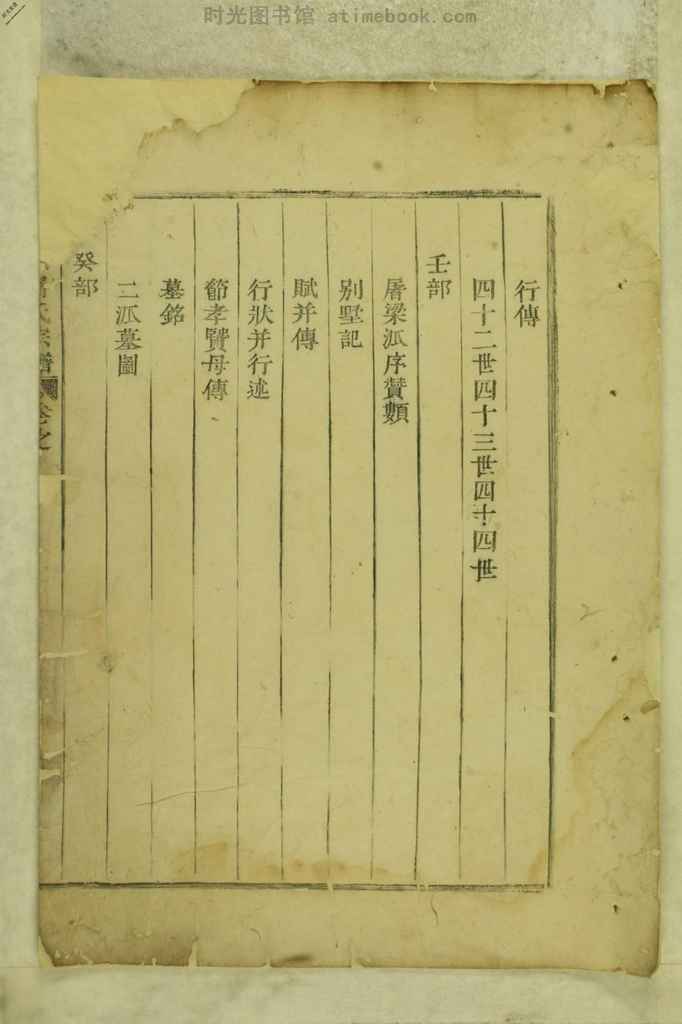 时光图书馆 atimebook.com
行傳
四十二世四十三世四十四世
壬部
屠梁派序贊類
别墅記
賦并傳
行狀并行述
節孝賢母傳
墓銘
二派墓圖
癸部
氏宗譜 卷之